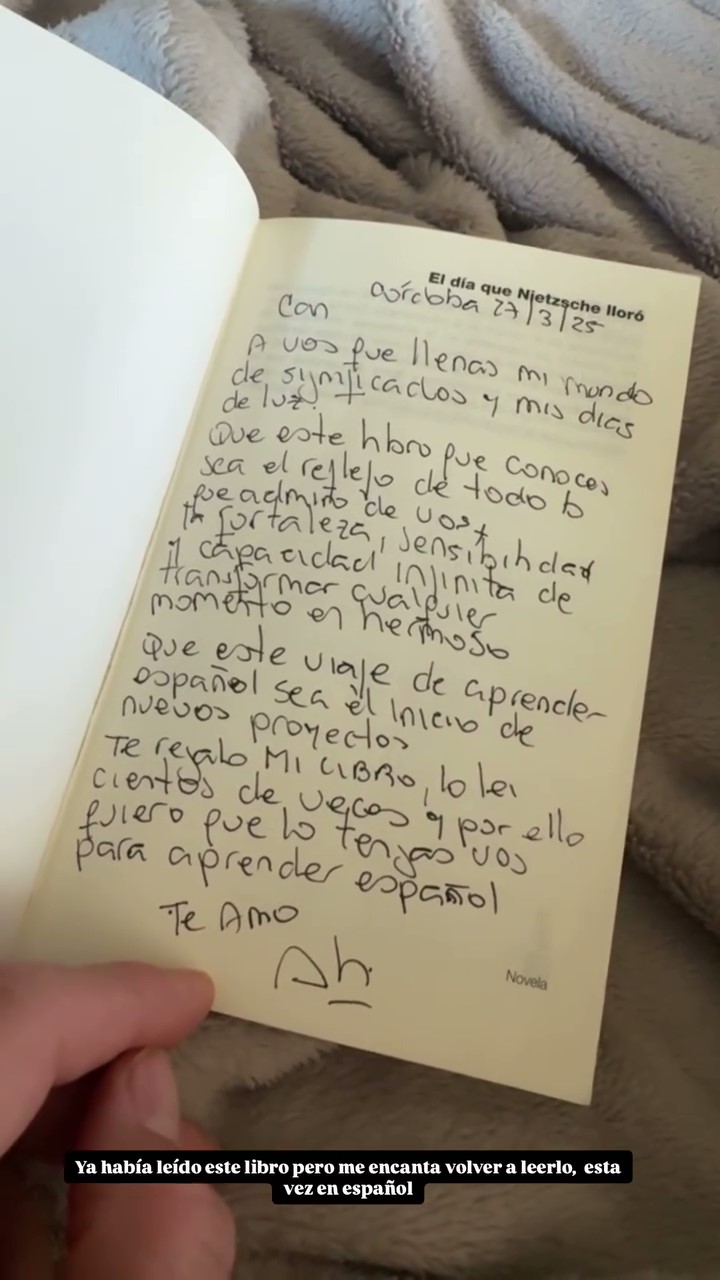 El día que Nietzsche lloró
Córdoba 27/3/25
Can
A vos que llenas mi mundo
de significados y mis dias
de luz.
Que este libro que conoces
sea el reflejo de todo lo
que admiro de vos,
tu fortaleza, sensibilidad
y capacidad infinita de
transformar cualquier
momento en hermoso
Que este viaje de aprender
español sea el inicio de
nuevos proyectos
Te regalo MI LIBRO, lo lei
cientos de veces y por ello
quiero que lo tengas vos
para aprender español
Te Amo
Novela
Ya había leído este libro pero me encanta volver a leerlo, esta
vez en español